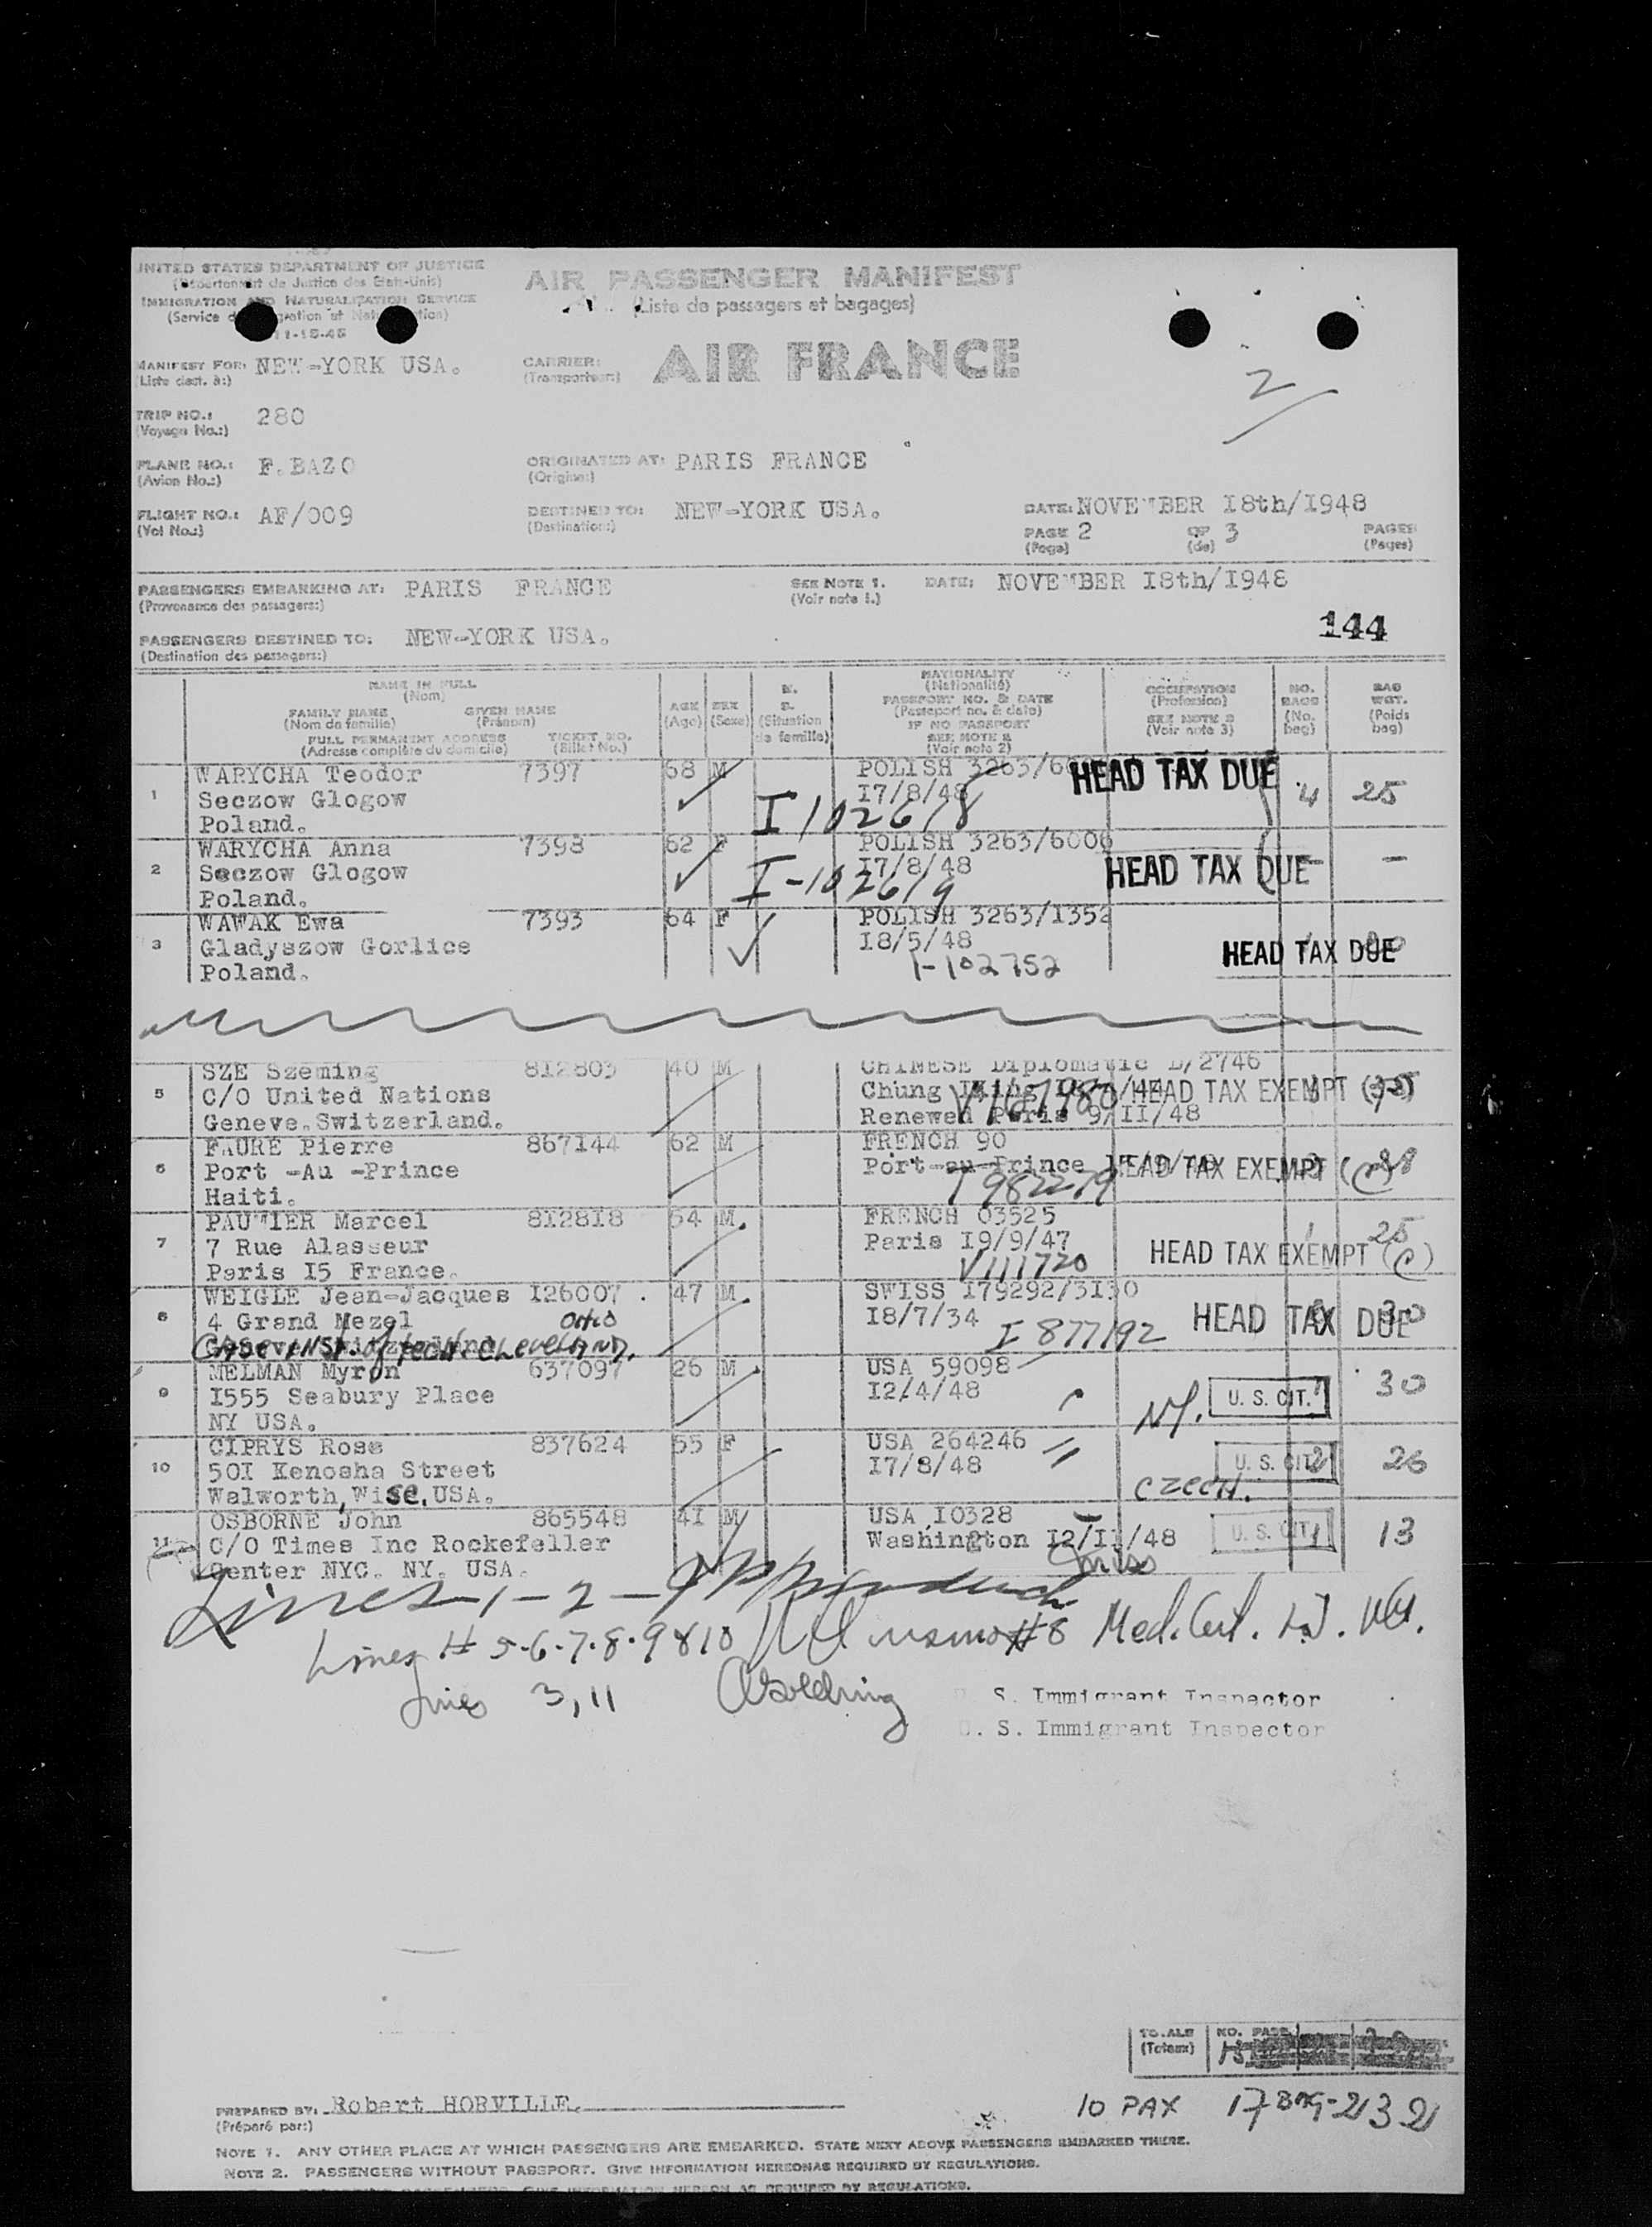 UNITED STATES DEPARTMENT OF JUSTICE
(Département de Justice des Etats-Unis)
IMMIGRATION AND NATURALIZATION SERVICE
(Service
11-15-46
AIR PASSENGER MANIFEST
(Liste de passagers et bagages)
MANIFEST FOR: NEW-YORK USA.
(Liste dest. à:)
CARRIER: AIR FRANCE
(Transporteur:)
2
TRIP NO.: 280
(Voyage No.:)
PLANE NO.: F.BAZO
(Avion No.:)
ORIGINATED AT: PARIS FRANCE
(Origine:)
FLIGHT NO.: AF/009
(Vol No.:)
DESTINED TO: NEW-YORK USA.
(Destination:)
DATE: NOVEMBER I8th/I948
PAGE 2 OF 3 PAGES
(Page) (de) (Pages)
PASSENGERS EMBARKING AT: PARIS FRANCE
(Provenance des passagers:)
SEE NOTE 1. DATE: NOVEMBER I8th/I948
(Voir note 1.)
144
PASSENGERS DESTINED TO: NEW-YORK USA.
(Destination des passagers:)
NAME IN FULL
(Nom)
FAMILY NAME GIVEN NAME
(Nom de famille) (Prénom)
FULL PERMANENT ADDRESS TICKET NO.
(Adresse complète du domicile) (Billet No.)
AGE
(Age)
SEX
(Sexe)
M.
S.
(Situation
de famille)
NATIONALITY
(Nationalité)
PASSPORT NO. & DATE
(Passeport no. & date)
IF NO PASSPORT
SEE NOTE 2
(Voir note 2)
OCCUPATION
(Profession)
SEE NOTE 3
(Voir note 3)
NO.
BAGS
(No.
bag)
BAG
WGT.
(Poids
bag)
1 WARYCHA Teodor 7397 68 M POLISH 3263/ HEAD TAX DUE 4 25
Seczow Glogow I7/8/48
Poland. I 102618
2 WARYCHA Anna 7398 62 F POLISH 3263/6006
Seczow Glogow I7/8/48 HEAD TAX DUE -
Poland. I-102619
3 WAWAK Ewa 7393 64 F POLISH 3263/I352
Gladyszow Gorlice I8/5/48 HEAD TAX DUE
Poland. I-102752
5 SZE Szeming 812803 40 M CHINESE Diplomatic D/2746
C/O United Nations Chung HEAD TAX EXEMPT
Geneve.Switzerland. Renewed Paris 9/II/48
6 FAURE Pierre 867144 62 M FRENCH 90
Port -Au -Prince Port-au-Prince HEAD TAX EXEMPT
Haiti.
7 PAUMIER Marcel 812818 54 M. FRENCH 03525
7 Rue Alasseur Paris I9/9/47 HEAD TAX EXEMPT (c) 1 25
Paris I5 France. V111720
8 WEIGLE Jean-Jacques I26007 . 47 M. SWISS I79292/3I30
4 Grand Mezel OHIO I8/7/34 I 877192 HEAD TAX DUE 30
CASE INST. of tech. CLEVELAND.
9 MELMAN Myron 637097 26 M. USA 59098
I555 Seabury Place I2/4/48 NY. U. S. CIT. 1 30
NY USA.
10 CIPRYS Rose 837624 55 F USA 264246
50I Kenosha Street I7/8/48 U. S. CIT. 2 26
Walworth,Wisc.USA. CZECH.
11 OSBORNE John 865548 4I M USA I0328
C/O Times Inc Rockefeller Washington I2/II/48 U. S. CIT. 1 13
Center NYC. NY. USA.
Lines 1-2-
Lines # 5-6-7-8-9&10 #8 Med. Cert.
Lines 3, 11
U. S. Immigrant Inspector
U. S. Immigrant Inspector
TOTALS
(Totaux)
NO. PASS.
PREPARED BY: Robert HORVILLE.
(Préparé par:)
10 PAX 17 BAG-
NOTE 1. ANY OTHER PLACE AT WHICH PASSENGERS ARE EMBARKED. STATE NEXT ABOVE PASSENGERS EMBARKED THERE.
NOTE 2. PASSENGERS WITHOUT PASSPORT. GIVE INFORMATION HEREON AS REQUIRED BY REGULATIONS.
GIVE INFORMATION HEREON AS REQUIRED BY REGULATIONS.